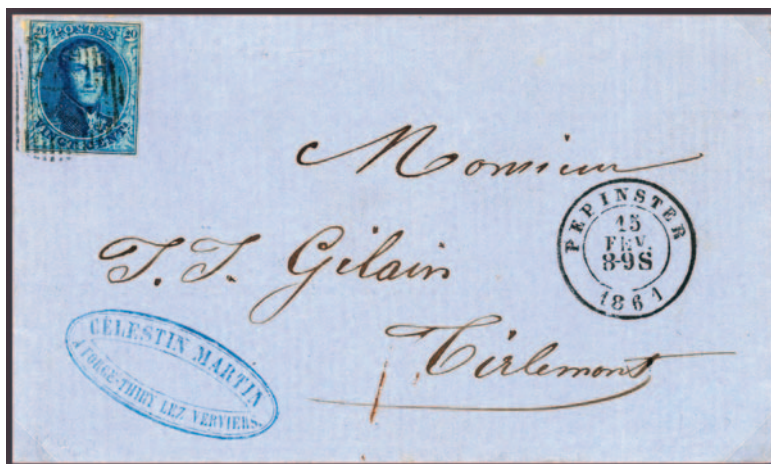 20 POSTES 20
VINGT CENT.
Monsieur
J. J. Gilain
Tirlemont
PEPINSTER
15
FEV.
8-9S
1861
CÉLESTIN MARTIN
A FORGE-THIRY LEZ VERVIERS.